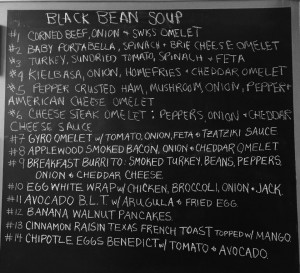 BLACK BEAN SOUP
#1 CORNED BEEF, ONION + SWISS OMELET
#2 BABY PORTABELLA, SPINACH + BRIE CHEESE OMELET
#3 TURKEY, SUNDRIED TOMATO, SPINACH + FETA
#4 KIELBASA, ONION, HOMEFRIES + CHEDDAR OMELET
#5 PEPPER CRUSTED HAM, MUSHROOM, ONION, PEPPER +
AMERICAN CHEESE OMELET
#6 CHEESE STEAK OMELET : PEPPERS, ONION + CHEDDAR
CHEESE SAUCE
#7 GYRO OMELET W/ TOMATO, ONION, FETA + TZATZIKI SAUCE
#8 APPLEWOOD SMOKED BACON, ONION + CHEDDAR OMELET
#9 BREAKFAST BURRITO: SMOKED TURKEY, BEANS, PEPPERS
ONION + CHEDDAR CHEESE
#10 EGG WHITE WRAP W/ CHICKEN, BROCCOLI, ONION + JACK
#11 AVOCADO B.L.T W/ ARUGULA + FRIED EGG
#12 BANANA WALNUT PANCAKES
#13 CINNAMON RAISIN TEXAS FRENCH TOAST TOPPED W/ MANGO
#14 CHIPOTLE EGGS BENEDICT W/ TOMATO + AVOCADO